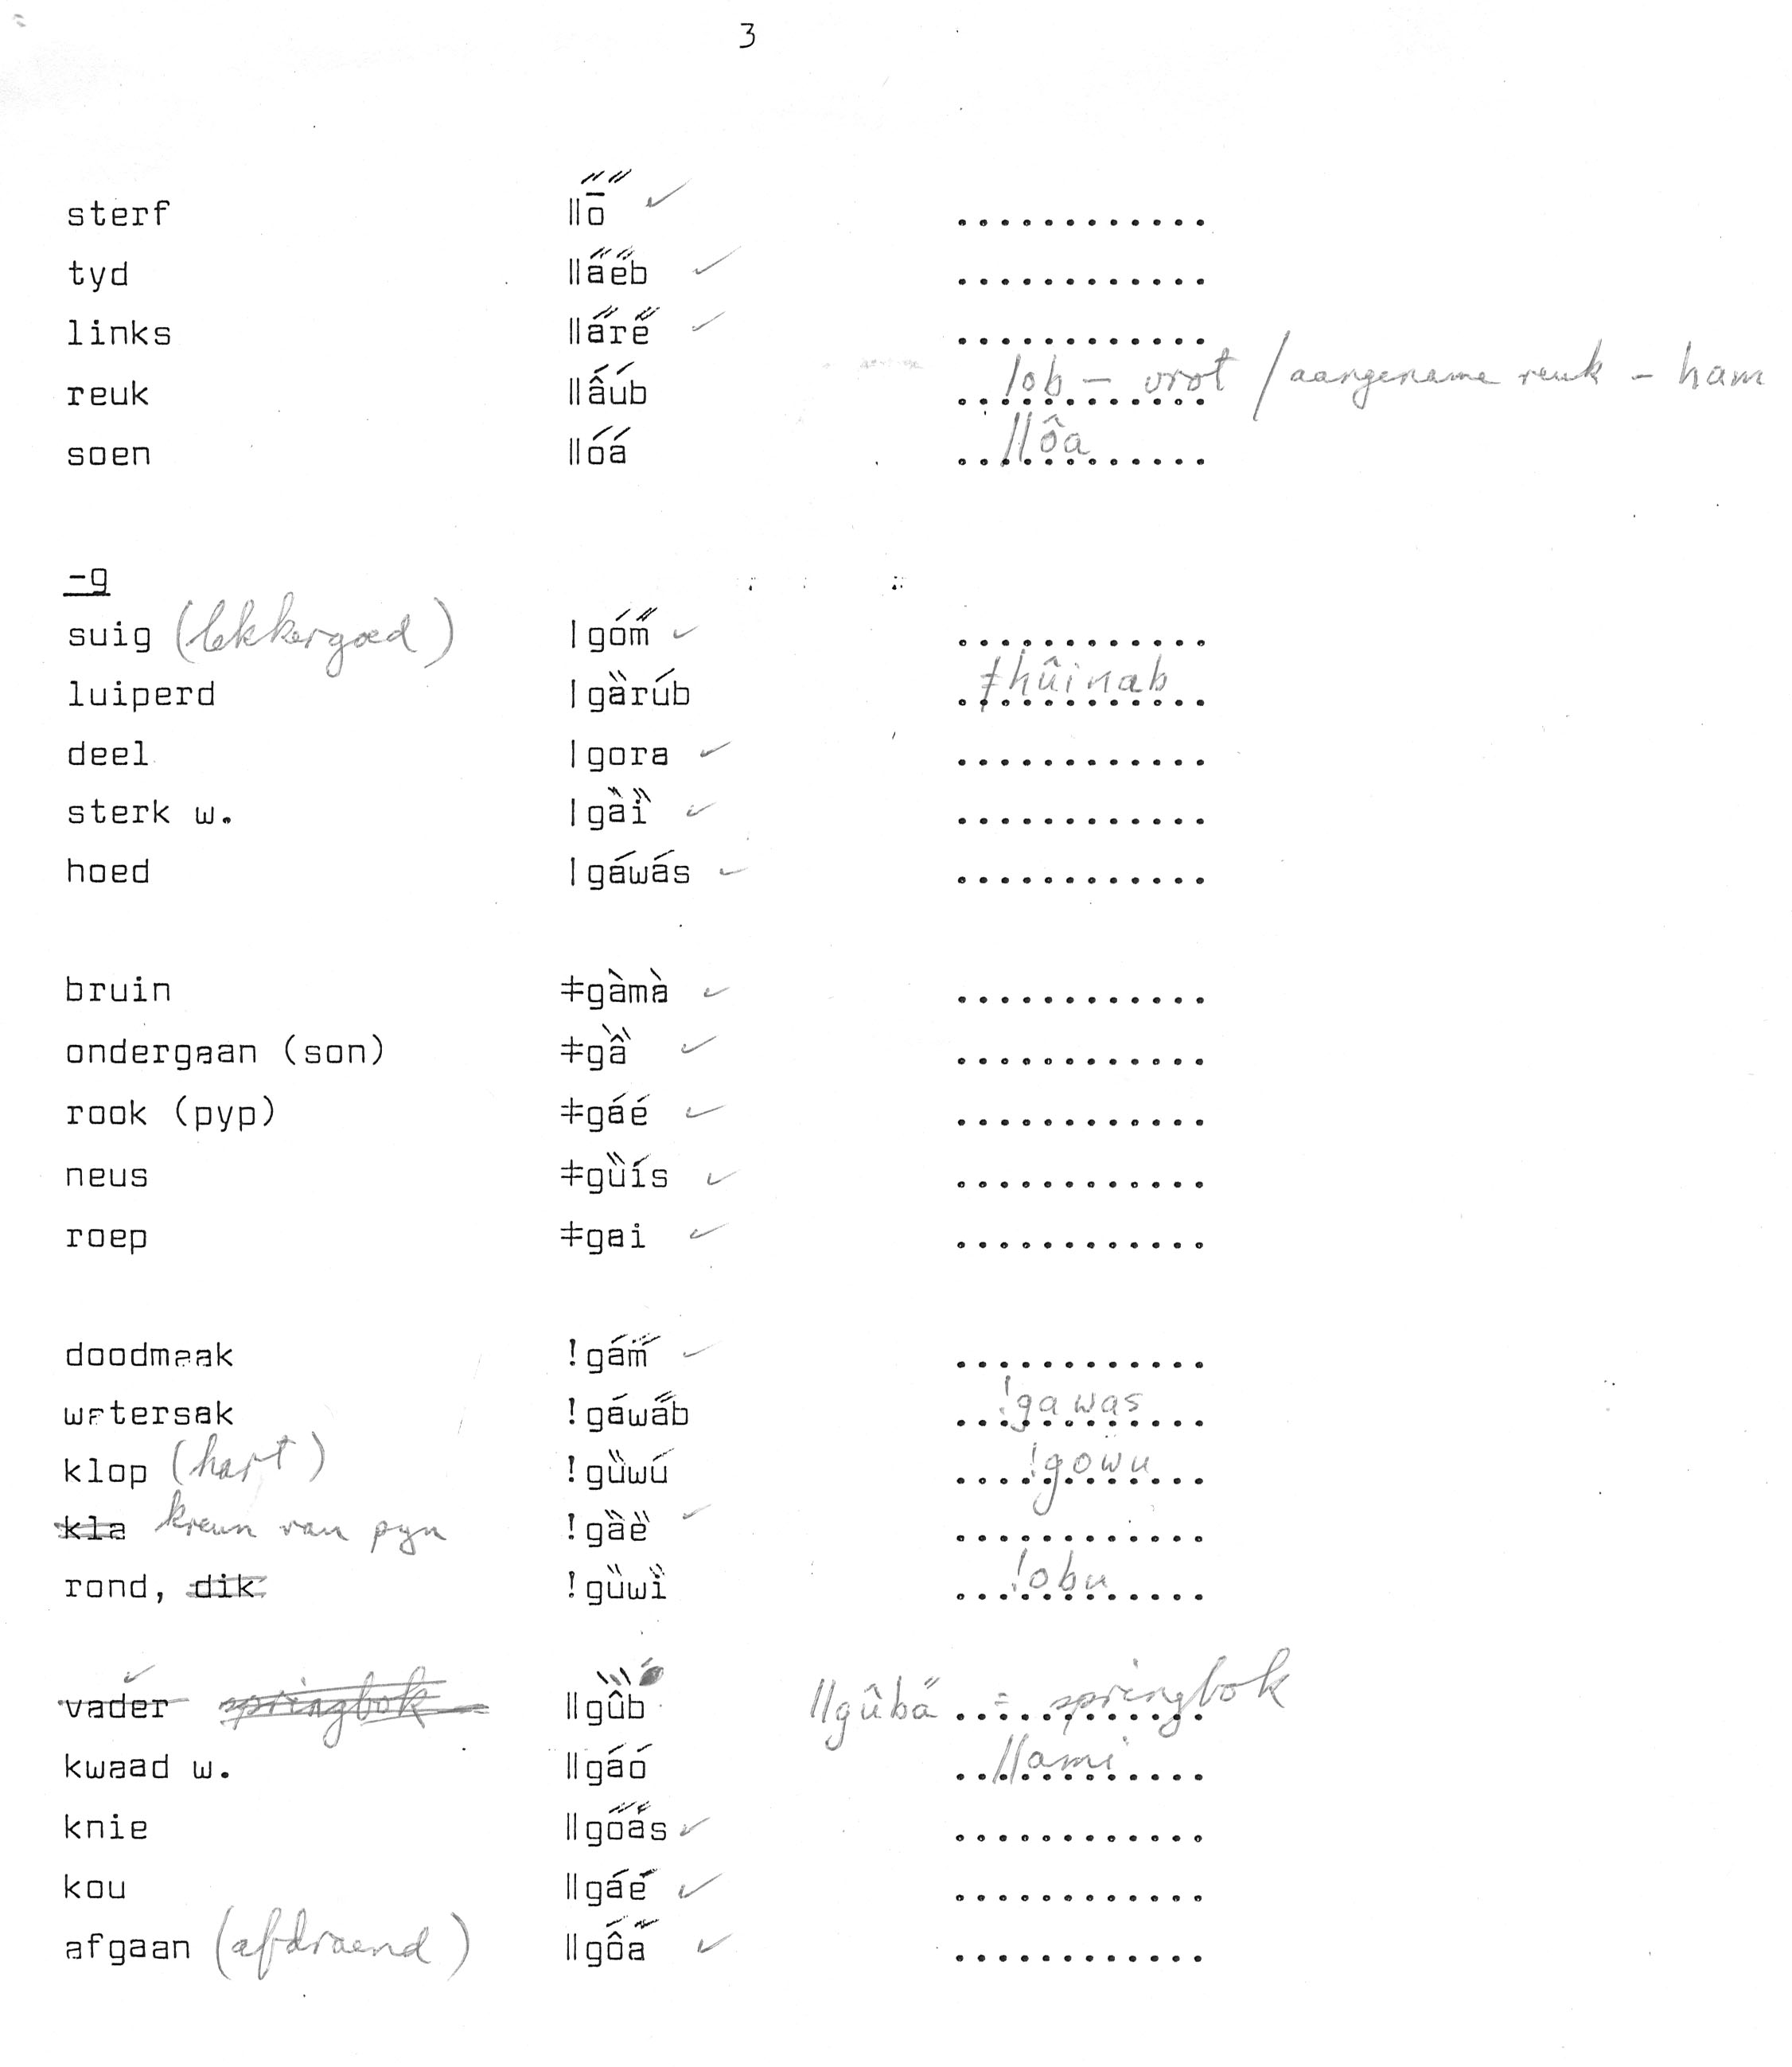 3
sterf ǁő̄ ✓ ............
tyd ǁa̋e̋b ✓ ............
links ǁa̋re̋ ✓ ............
reuk ǁấúb /ob – vrot / aangename reuk – ham
soen ǁóá //ôa
-g
suig (lekkergoed) ǀgóm̋ ✓ ............
luiperd ǀgȁrúb ǂhûinab
deel ǀgora ✓ ............
sterk w. ǀgȁȉ ✓ ............
hoed ǀgáwás ✓ ............
bruin ǂgàmà ✓ ............
ondergaan (son) ǂgâ̏ ✓ ............
rook (pyp) ǂgáé ✓ ............
neus ǂgȕís ✓ ............
roep ǂgai ✓ ............
doodmaak !gám̋ ✓ ............
watersak !gáwa̋b !gawas
klop (hart) !gȕwú !gowu
kla kreun van pyn !gȁȅ ✓ ............
rond, dik !gȕwȉ !obu
vader ✓ springbok ǁgû̏b //gûba̋ = springbok
kwaad w. ǁgáó //ami
knie ǁgőa̋s ✓ ............
kou ǁgáé ✓ ............
afgaan (afdraend) ǁgố̂a̋ ✓ ............